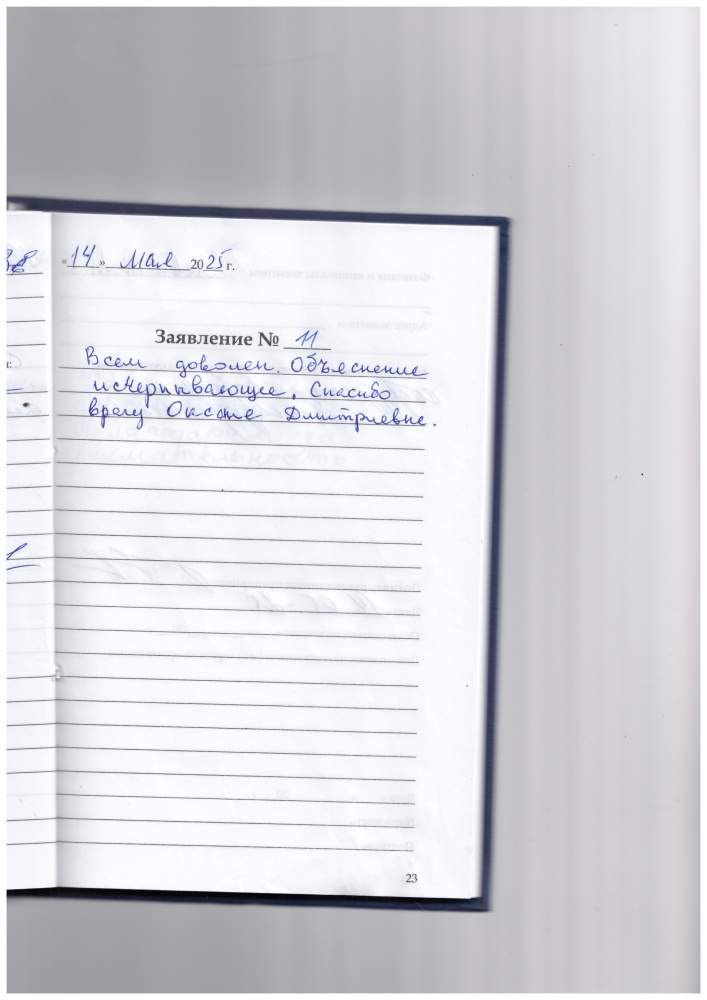 «14» Мая 2025 г.
Заявление № 11
Всем доволен. Объяснение
исчерпывающее. Спасибо
врачу Оксане Дмитриевне.
23